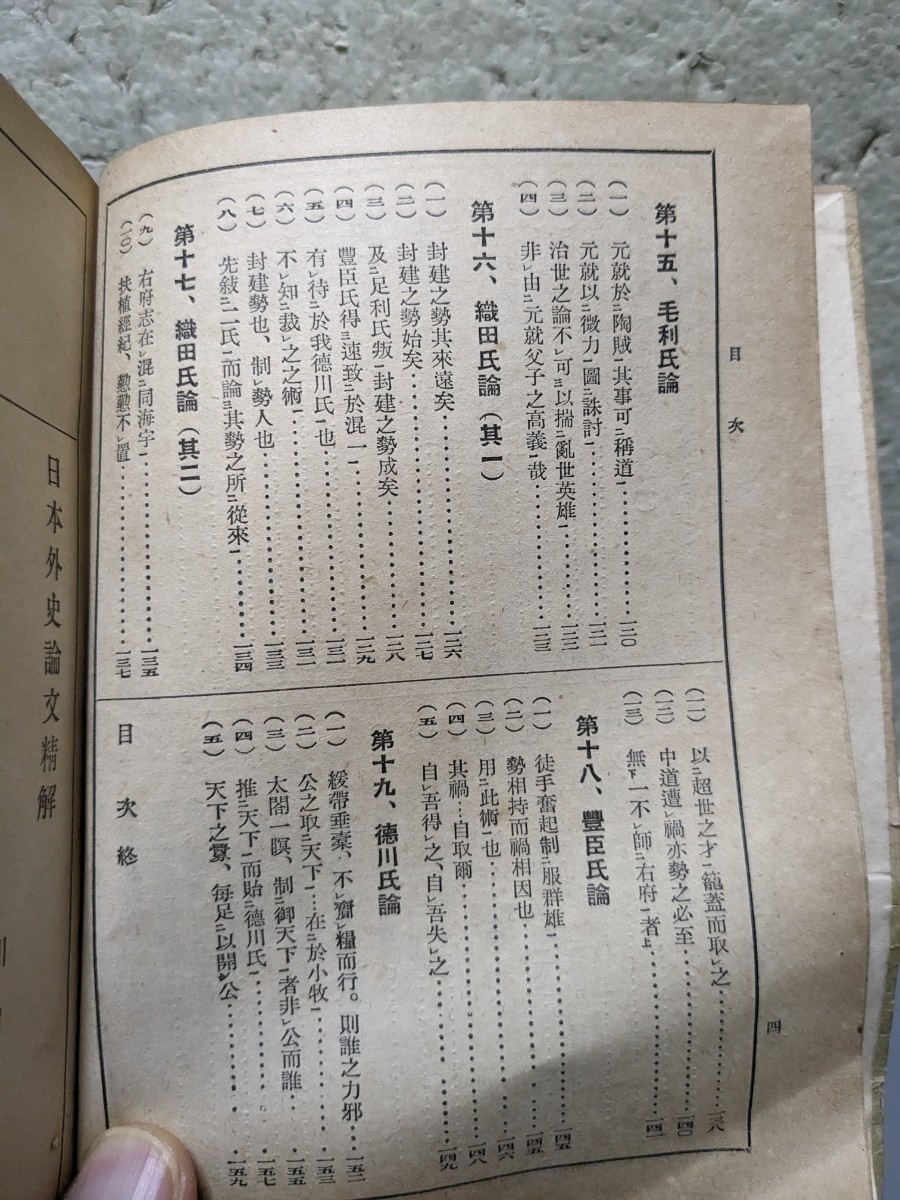 目次
四
第十五、毛利氏論
(一) 元就於㆓陶賊㆒其事可㆓稱道㆒…………一二〇
(二) 元就以㆓微力㆒圖㆓誅討㆒…………一二一
(三) 治世之論不㆑可㆔以揣㆓亂世英雄㆒…………一二二
(四) 非㆑由㆓元就父子之高義㆒哉…………一二三
第十六、織田氏論(其一)
(一) 封建之勢其來遠矣…………一二六
(二) 封建之勢始矣…………一二七
(三) 及㆓足利氏叛㆒封建之勢成矣…………一二八
(四) 豐臣氏得㆔速致㆓於混一㆒…………一二九
(五) 有㆑待㆓於我德川氏㆒也…………一三一
(六) 不㆑知㆓裁㆑之之術㆒…………一三二
(七) 封建勢也、制㆑勢人也…………一三三
(八) 先敍㆓二氏㆒而論㆔其勢之所㆓從來㆒…………一三四
第十七、織田氏論(其二)
(九) 右府志在㆑混㆓同海宇㆒…………一三五
(一〇) 扶植經紀、懃懃不㆑置…………一三七
(一一) 以㆓超世之才㆒籠蓋而取㆑之…………一三八
(一二) 中道遭㆑禍亦勢之必至…………一四〇
(一三) 無㆘一不㆑師㆓右府㆒者㆖…………一四一
第十八、豐臣氏論
(一) 徒手奮起制㆓服群雄㆒…………一四五
(二) 勢相持而禍相因也…………一四五
(三) 用㆓此術㆒也…………一四六
(四) 其禍…自取爾…………一四八
(五) 自㆑吾得㆑之、自㆑吾失㆑之…………一四九
第十九、德川氏論
(一) 緩帶垂橐、不㆑齎㆑糧而行。則誰之力邪…一五二
(二) 公之取㆓天下㆒…在㆓於小牧㆒…………一五三
(三) 太閤一瞑、制㆓御天下㆒者非㆑公而誰…一五五
(四) 推㆓天下㆒而貽㆓德川氏㆒…………一五七
(五) 天下之釁、每足㆓以開㆑公…………一五九
目次終
日本外史論文精解